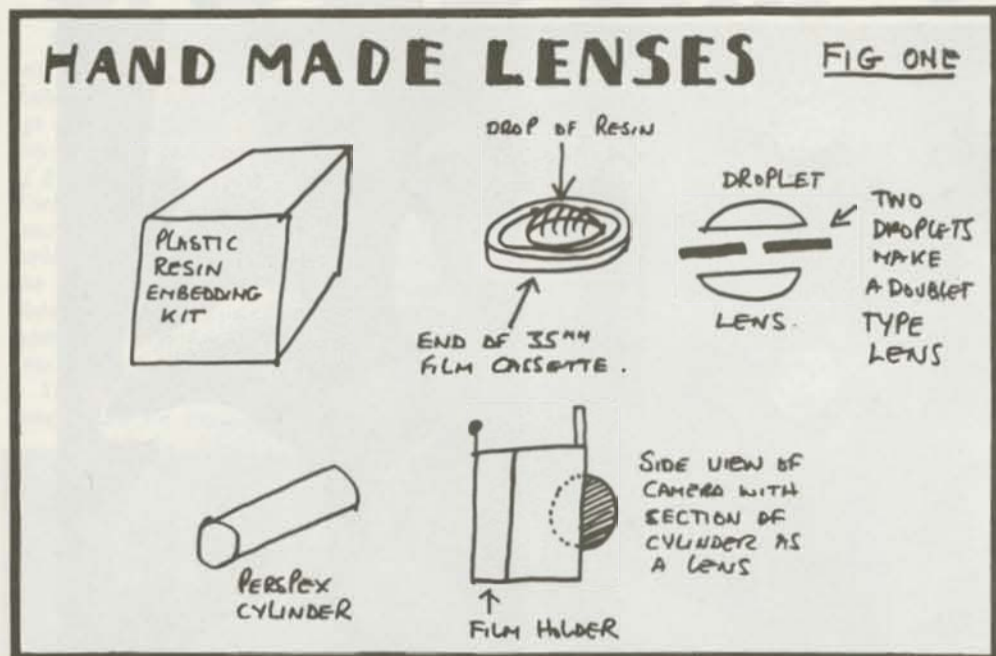 HAND MADE LENSES
FIG ONE
PLASTIC
RESIN
EMBEDDING
KIT
DROP OF RESIN
END OF 35MM
FILM CASSETTE.
DROPLET
LENS.
TWO
DROPLETS
MAKE
A DOUBLET
TYPE
LENS
PERSPEX
CYLINDER
FILM HOLDER
SIDE VIEW OF
CAMERA WITH
SECTION OF
CYLINDER AS
A LENS